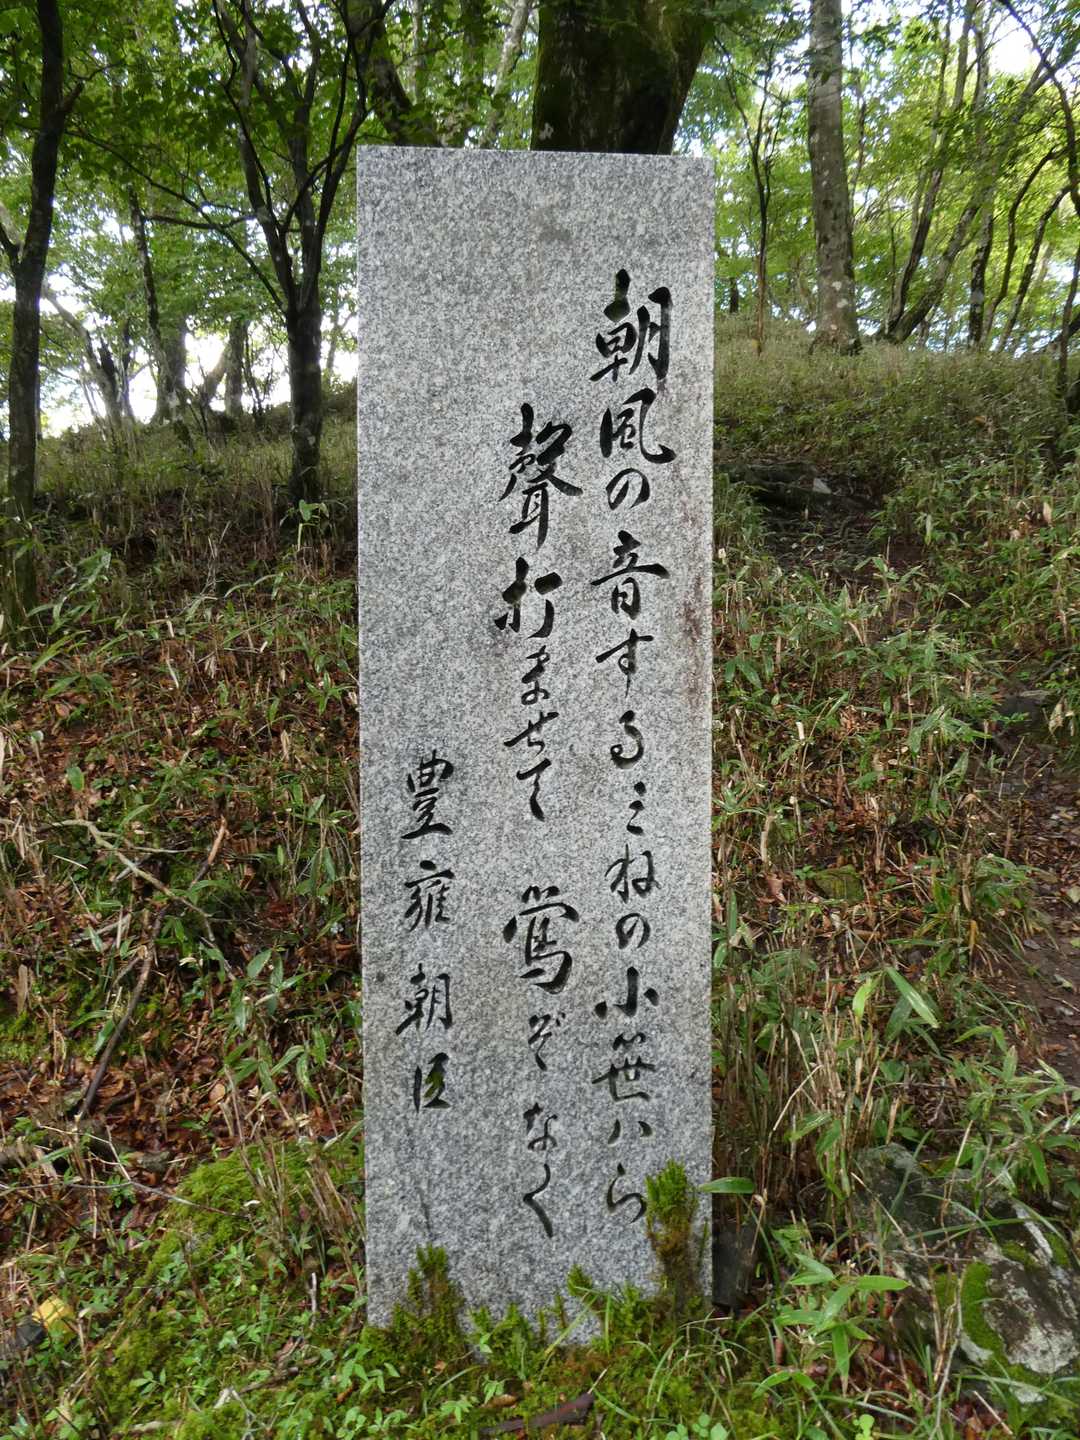 朝風の音するみねの小笹ハら
聲打ませて鶯ぞなく
豊雍朝臣